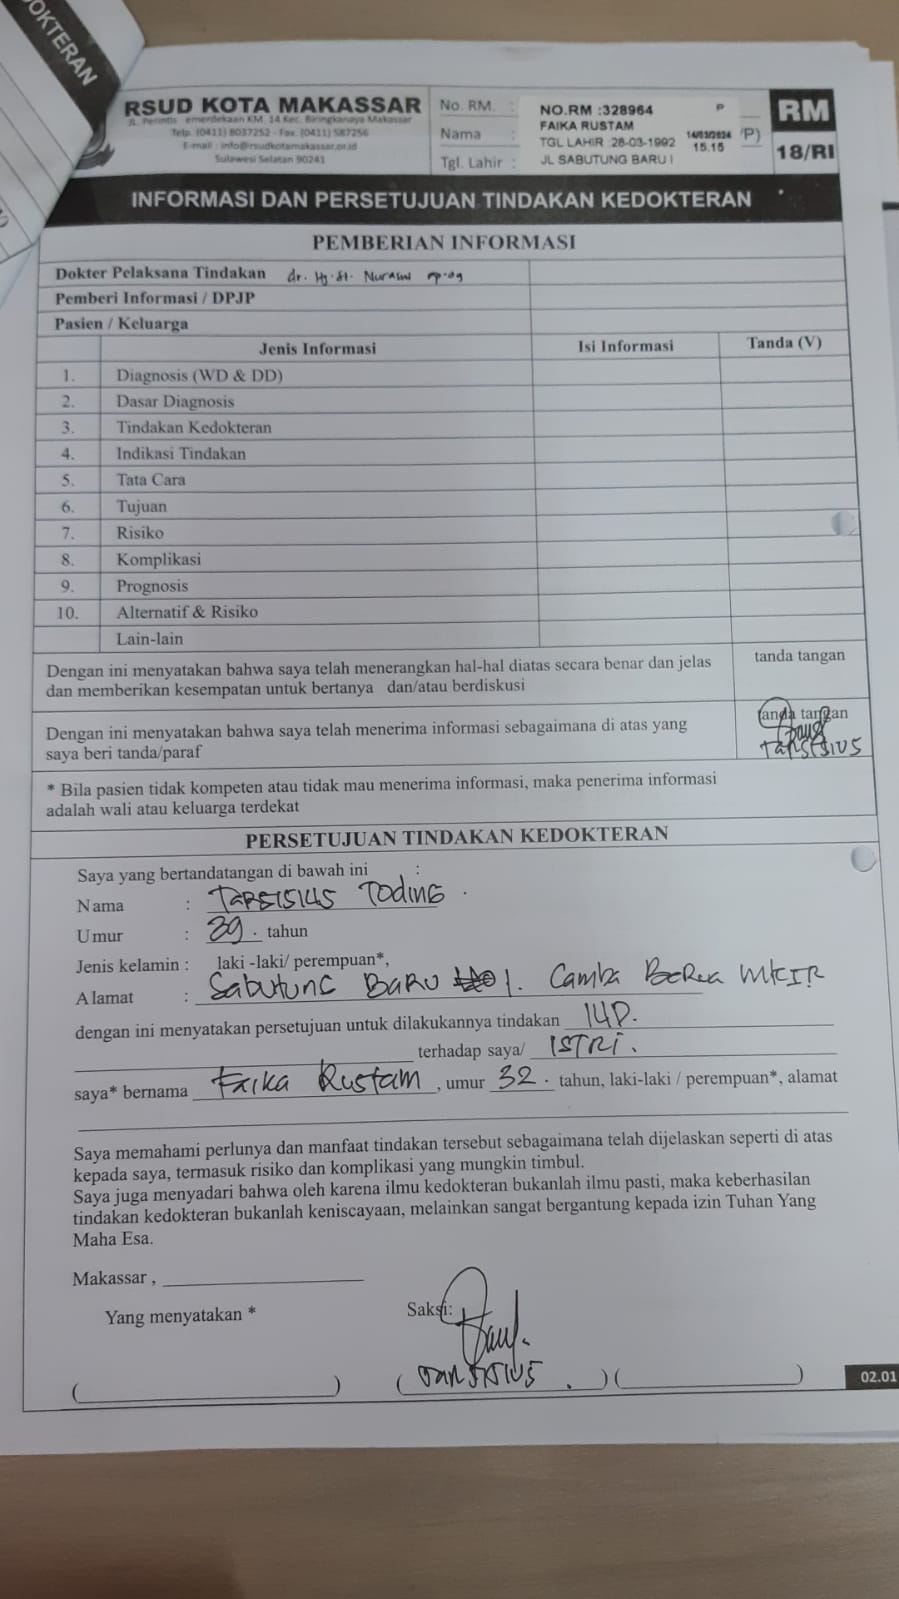 OKTERAN
RSUD KOTA MAKASSAR
JL. Perintis emerdekaan KM. 14 Kec. Biringkanaya Makassar
Telp. (0411) 8037252 - Fax. (0411) 587256
E-mail : info@rsudkotamakassar.or.id
Sulawesi Selatan 90241
No. RM. :
Nama :
Tgl. Lahir :
NO.RM :328964 P
FAIKA RUSTAM
TGL LAHIR :28-03-1992 14/03/2024 P)
JL SABUTUNG BARU I 15.15
RM
18/RI
INFORMASI DAN PERSETUJUAN TINDAKAN KEDOKTERAN
PEMBERIAN INFORMASI
Dokter Pelaksana Tindakan dr. Hj. St. Nurasni
Pemberi Informasi / DPJP
Pasien / Keluarga
Jenis Informasi Isi Informasi Tanda (V)
1. Diagnosis (WD & DD)
2. Dasar Diagnosis
3. Tindakan Kedokteran
4. Indikasi Tindakan
5. Tata Cara
6. Tujuan
7. Risiko
8. Komplikasi
9. Prognosis
10. Alternatif & Risiko
Lain-lain
Dengan ini menyatakan bahwa saya telah menerangkan hal-hal diatas secara benar dan jelas tanda tangan
dan memberikan kesempatan untuk bertanya dan/atau berdiskusi
Dengan ini menyatakan bahwa saya telah menerima informasi sebagaimana di atas yang tanda tangan
saya beri tanda/paraf TARSISIUS
* Bila pasien tidak kompeten atau tidak mau menerima informasi, maka penerima informasi
adalah wali atau keluarga terdekat
PERSETUJUAN TINDAKAN KEDOKTERAN
Saya yang bertandatangan di bawah ini :
Nama : TARSISIUS TODING
Umur : 39. tahun
Jenis kelamin : laki -laki/ perempuan*,
Alamat : Sabutung BARU 1. Camba BERUA MKSR
dengan ini menyatakan persetujuan untuk dilakukannya tindakan IUD.
terhadap saya/ ISTRI.
saya* bernama Faika Rustam, umur 32. tahun, laki-laki / perempuan*, alamat
Saya memahami perlunya dan manfaat tindakan tersebut sebagaimana telah dijelaskan seperti di atas
kepada saya, termasuk risiko dan komplikasi yang mungkin timbul.
Saya juga menyadari bahwa oleh karena ilmu kedokteran bukanlah ilmu pasti, maka keberhasilan
tindakan kedokteran bukanlah keniscayaan, melainkan sangat bergantung kepada izin Tuhan Yang
Maha Esa.
Makassar ,
Yang menyatakan * Saksi:
( ) ( TARSISIUS . ) ( )
02.01